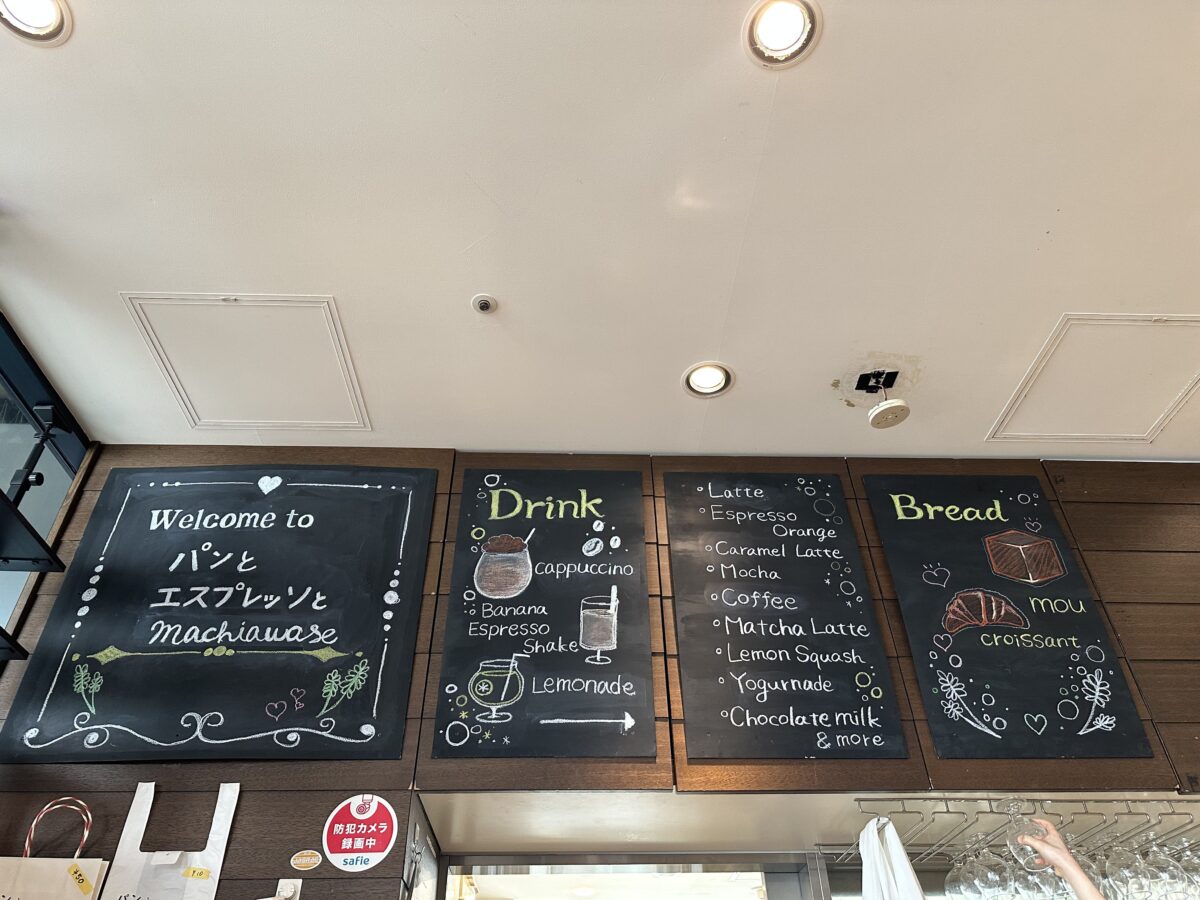 Welcome to
パンと
エスプレッソと
machiawase
Drink
cappuccino
Banana
Espresso
Shake
Lemonade
Latte
Espresso
Orange
Caramel Latte
Mocha
Coffee
Matcha Latte
Lemon Squash
Yogurnade
Chocolate milk
& more
Bread
mou
croissant
防犯カメラ
録画中
safie
¥50
¥10